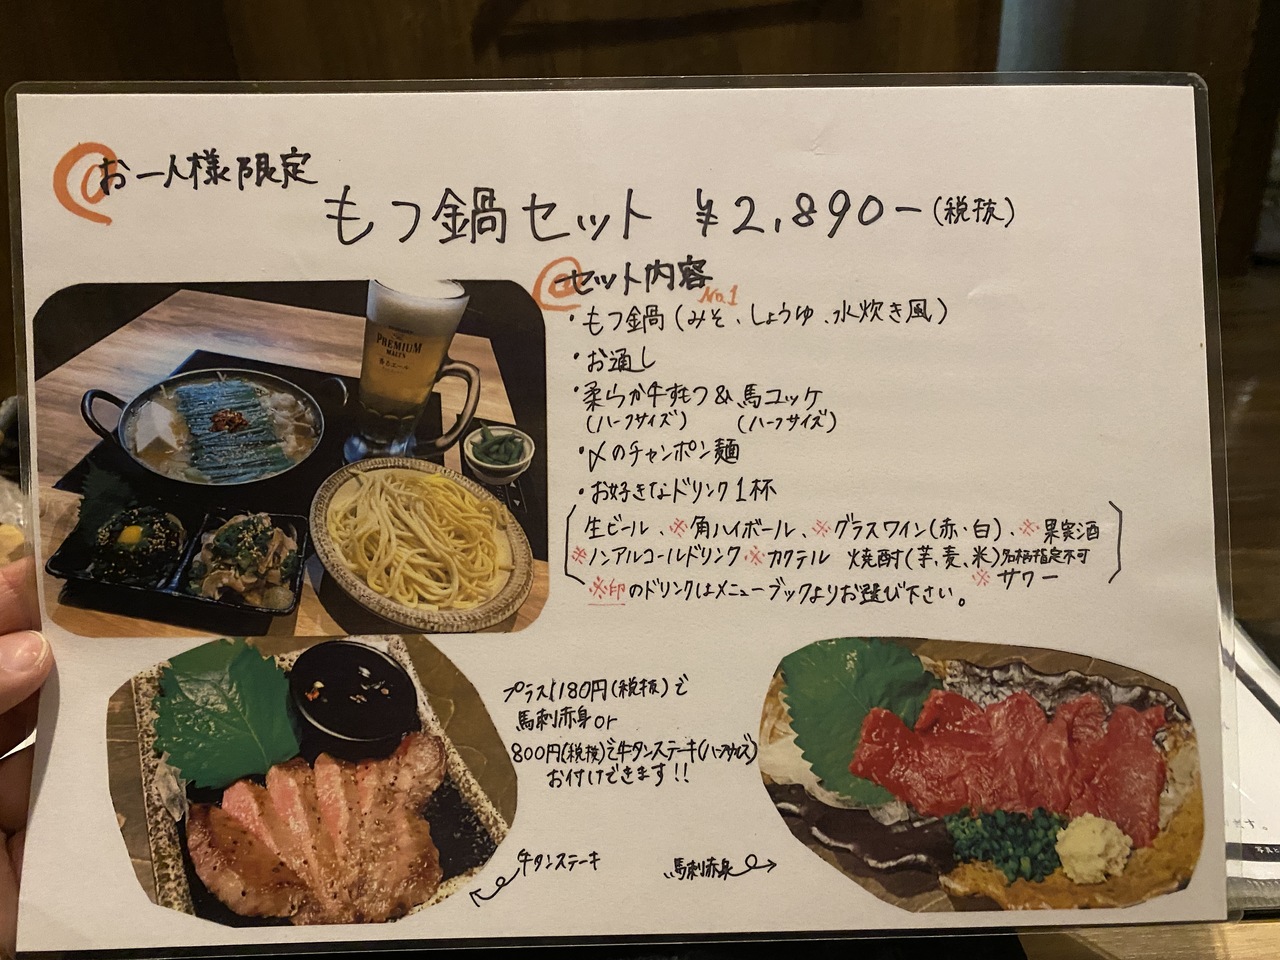 お一人様限定
もつ鍋セット ¥2,890-(税抜)
セット内容
No.1
・もつ鍋(みそ、しょうゆ、水炊き風)
・お通し
・柔らか牛すもつ&馬ユッケ
(ハーフサイズ) (ハーフサイズ)
・〆のチャンポン麺
・お好きなドリンク1杯
生ビール、※角ハイボール、※グラスワイン(赤・白)、※果実酒
※ノンアルコールドリンク ※カクテル 焼酎(芋、麦、米)銘柄指定不可
※サワー
※印のドリンクはメニューブックよりお選び下さい。
THE
PREMIUM
MALT'S
香るエール
プラス1180円(税抜)で
馬刺赤身or
800円(税抜)で牛タンステーキ(ハーフサイズ)
お付けできます!!
牛タンステーキ
馬刺赤身